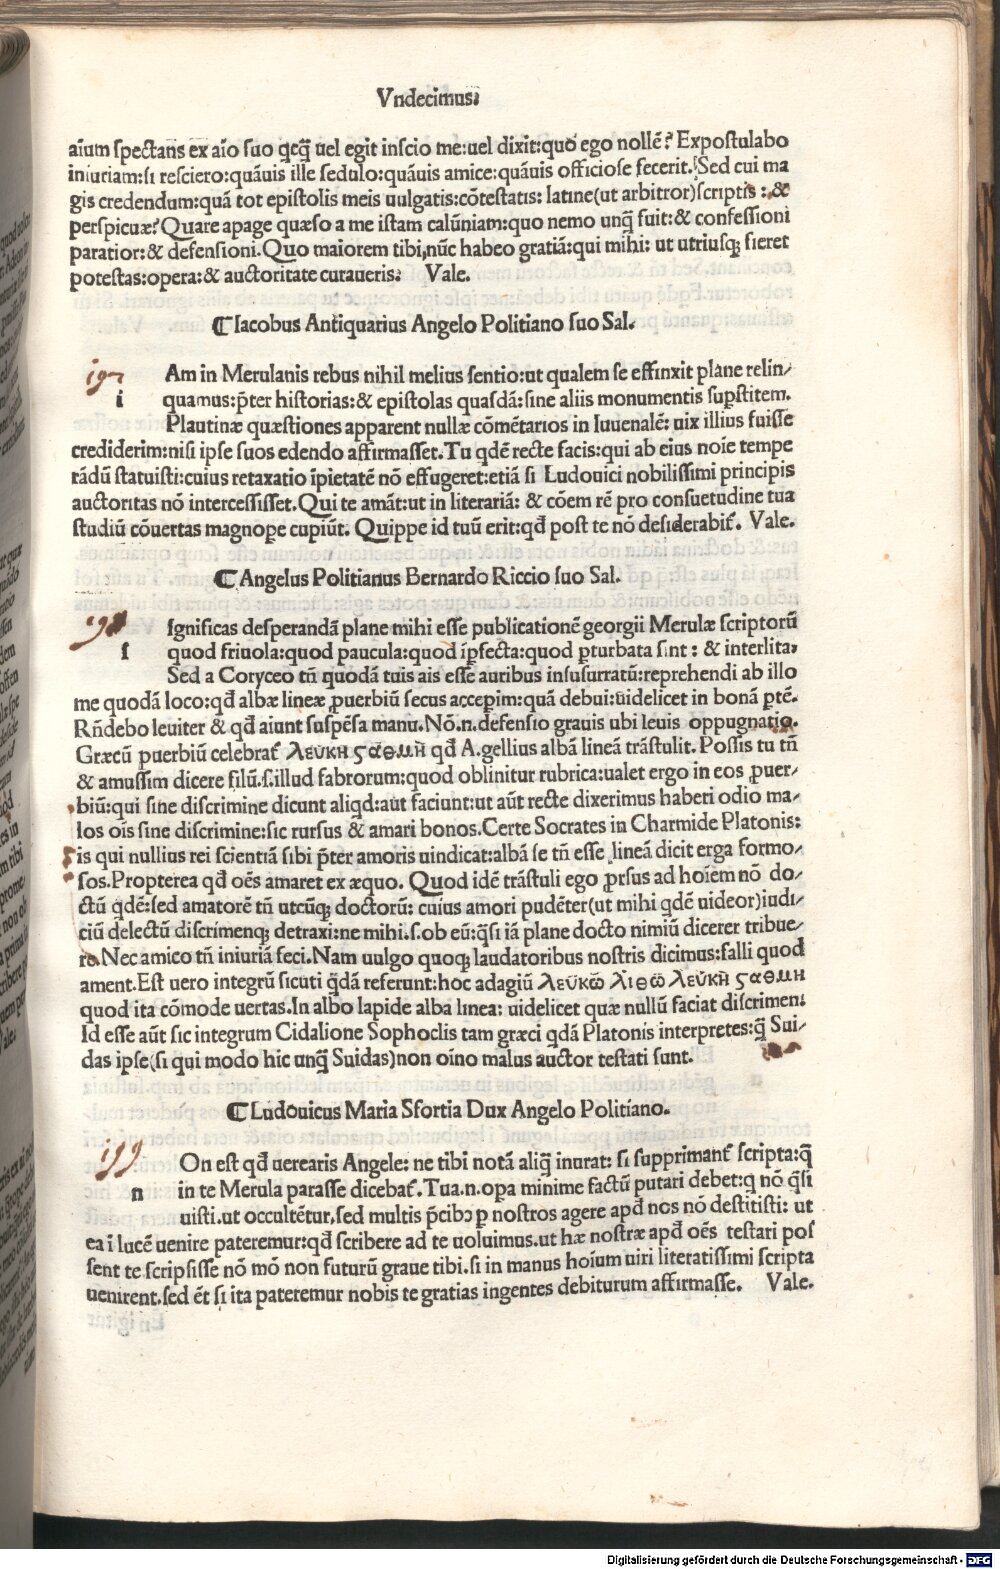 Vndecimus.
aĩum spectans ex aĩo suo qcq̃ uel egit inscio me:uel dixit:quod ego nollẽ? Expostulabo
iniuriam:si resciero:quãuis ille sedulo:quãuis amice:quãuis officiose fecerit. Sed cui ma
gis credendum:quã tot epistolis meis uulgatis:cõtestatis: latine(ut arbitror)scriptis :&
perspicuæ? Quare apage quæso a me istam calũniam:quo nemo unq̃ fuit:& confessioni
paratior:& defensioni. Quo maiorem tibi,nũc habeo gratiã:qui mihi: ut utriusq; fieret
potestas:opera:& auctoritate curaueris: Vale.
¶Iacobus Antiquarius Angelo Politiano suo Sal.
197
Am in Merulanis rebus nihil melius sentio:ut qualem se effinxit plane relin/
i quamus:p̃ter historias:& epistolas quasdã:sine aliis monumentis supstitem.
Plautinæ quæstiones apparent nullæ cõmẽtarios in Iuuenalẽ: uix illius fuisse
crediderim:nisi ipse suos edendo affirmasset. Tu qdẽ recte facis:qui ab eius noĩe tempe
rãdũ statuisti:cuius retaxatio ĩpietatẽ nõ effugeret:etiã si Ludouici nobilissimi principis
auctoritas nõ intercessisset. Qui te amãt:ut in literariã: & cõem rẽ pro consuetudine tua
studiũ cõuertas magnope cupiũt. Quippe id tuũ erit:qd̃ post te nõ desiderabit̃. Vale.
¶Angelus Politianus Bernardo Riccio suo Sal.
198
Ignificas desperandã plane mihi esse publicationẽ georgii Merulæ scriptorũ
s quod friuola:quod paucula:quod ĩpfecta:quod pturbata sint : & interlita:
Sed a Coryceo tñ quodã tuis ais esse auribus insusurratũ:reprehendi ab illo
me quodã loco:qd̃ albæ lineæ puerbiũ secus accepim:quã debui:uidelicet in bonã ptẽ.
Rñdebo leuiter & qd̃ aiunt suspẽsa manu. Nõ.n.defensio grauis ubi leuis oppugnatio.
Græcũ puerbiũ celebrat̃ λευκὴ ϛάθμὴ qd̃ A.gellius albã lineã trãstulit. Possis tu tñ
& amussim dicere filũ.s.illud fabrorum:quod oblinitur rubrica:ualet ergo in eos puer/
biũ:qui sine discrimine dicunt aliqd:aut faciunt:ut aũt recte dixerimus haberi odio ma/
los oẽs sine discrimine:sic rursus & amari bonos.Certe Socrates in Charmide Platonis:
is qui nullius rei scientiã sibi p̃ter amoris uindicat:albã se tñ esse lineã dicit erga formo/
sos.Propterea qd̃ oẽs amaret ex æquo. Quod idẽ trãstuli ego prsus ad hoĩem nõ do/
ctũ qdẽ:sed amatorẽ tñ utcũq; doctorũ: cuius amori pudẽter(ut mihi qdẽ uideor)iudi/
ciũ delectũ discrimenq; detraxi:ne mihi.s.ob eũ:q̃si iã plane docto nimiũ dicerer tribue/
re. Nec amico tñ iniuriã feci. Nam uulgo quoq; laudatoribus nostris dicimus:falli quod
ament.Est uero integrũ sicuti qdã referunt:hoc adagiũ λεύκῶ λίθῶ λεύκὴ ϛαθμη
quod ita cõmode uertas.In albo lapide alba linea: uidelicet quæ nullũ faciat discrimen:
Id esse aũt sic integrum Cidalione Sophoclis tam græci qdã Platonis interpretes:q̃ Sui/
das ipse(si qui modo hic unq̃ Suidas)non oĩno malus auctor testati sunt.
¶Ludouicus Maria Sfortia Dux Angelo Politiano.
199
On est qd̃ uerearis Angele: ne tibi notã aliq̃ inurat: si supprimant̃ scripta:q̃
n in te Merula parasse dicebat̃. Tua.n.opa minime factũ putari debet:q nõ q̃si
uisti.ut occultẽtur,sed multis p̃cibꝰ p nostros agere apd̃ nos nõ destitisti: ut
ea ĩ lucẽ uenire pateremur:qd̃ scribere ad te uoluimus.ut hæ nostræ apd̃ oẽs testari pos
sent te scripsisse nõ mõ non futurũ graue tibi.si in manus hoĩum uiri literatissimi scripta
uenirent.sed ẽt si ita pateremur nobis te gratias ingentes debiturum affirmasse. Vale.
Digitalisierung gefördert durch die Deutsche Forschungsgemeinschaft - DFG